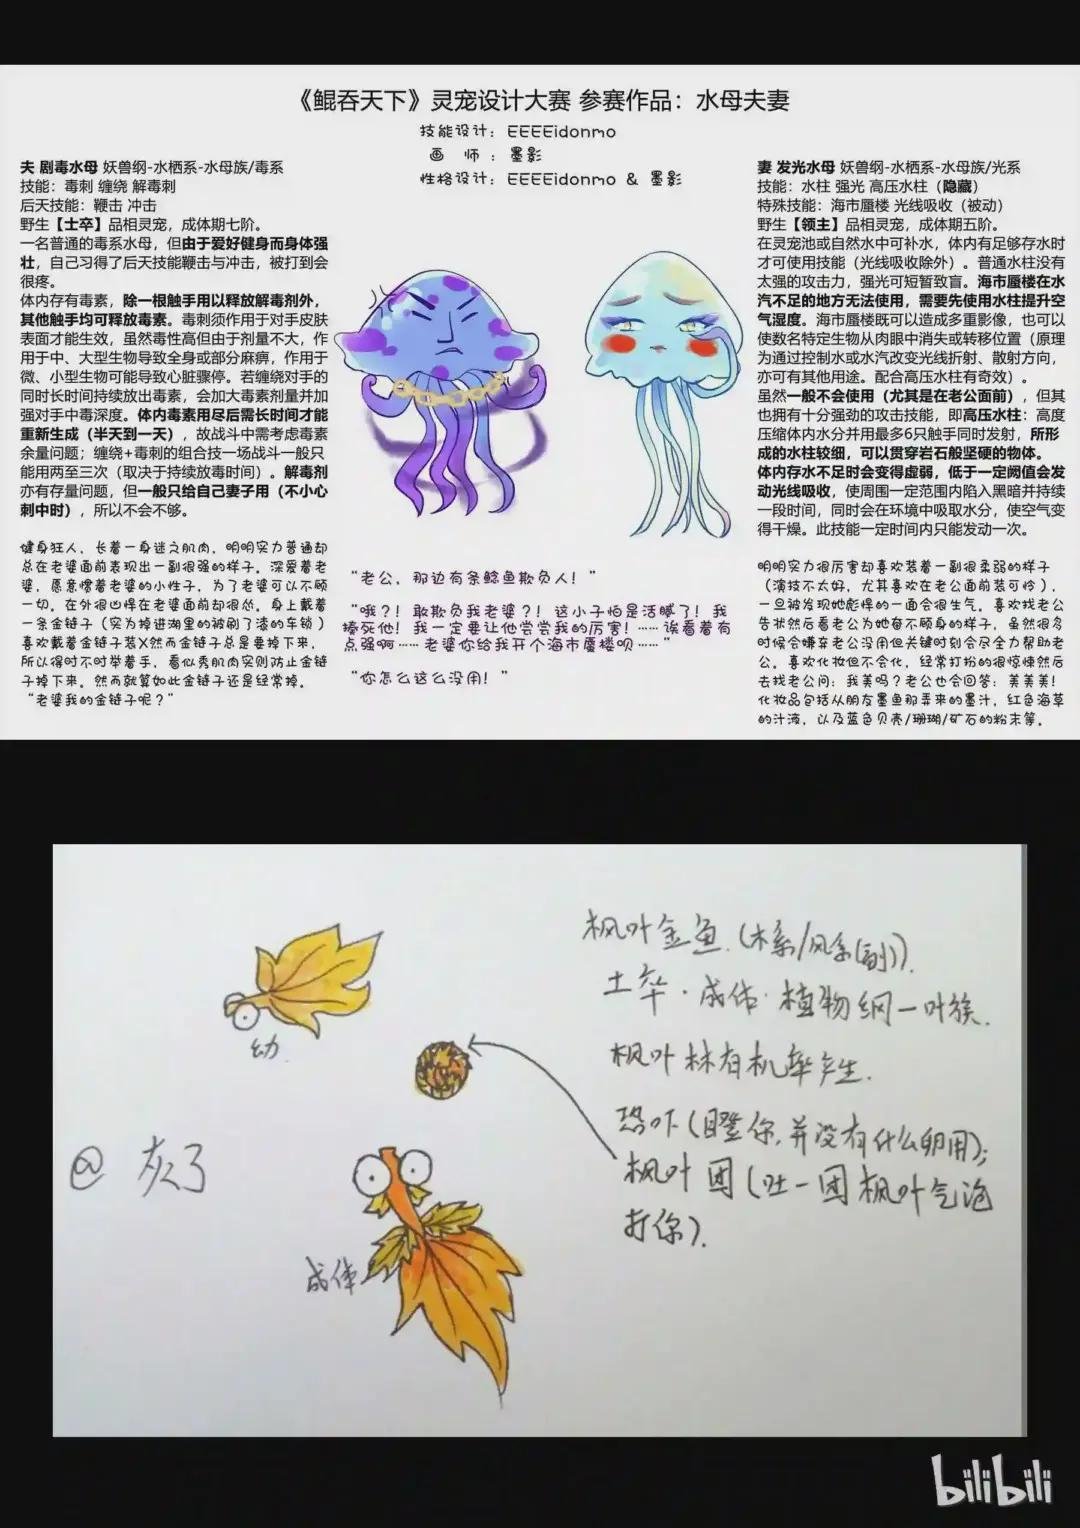 《鲲吞天下》灵宠设计大赛 参赛作品：水母夫妻
技能设计：EEEEidonmo
画 师：墨影
性格设计：EEEEidonmo & 墨影
夫 剧毒水母 妖兽纲-水栖系-水母族/毒系
技能：毒刺 缠绕 解毒刺
后天技能：鞭击 冲击
野生【士卒】品相灵宠，成体期七阶。
一名普通的毒系水母，但由于爱好健身而身体强
壮，自己习得了后天技能鞭击与冲击，被打到会
很疼。
体内存有毒素，除一根触手用以释放解毒剂外，
其他触手均可释放毒素。毒刺须作用于对手皮肤
表面才能生效，虽然毒性高但由于剂量不大，作
用于中、大型生物导致全身或部分麻痹，作用于
微、小型生物可能导致心脏骤停。若缠绕对手的
同时长时间持续放出毒素，会加大毒素剂量并加
强对手中毒深度。体内毒素用尽后需长时间才能
重新生成（半天到一天），故战斗中需考虑毒素
余量问题；缠绕+毒刺的组合技一场战斗一般只
能用两至三次（取决于持续放毒时间）。解毒剂
亦有存量问题，但一般只给自己妻子用（不小心
刺中时），所以不会不够。
健身狂人，长着一身谜之肌肉，明明实力普通却
总在老婆面前表现出一副很强的样子。深爱着老
婆，愿意惯着老婆的小性子，为了老婆可以不顾
一切。在外很凶悍在老婆面前却很怂。身上戴着
一条金链子（实为掉进湖里的被刷了漆的车锁）
喜欢戴着金链子装X然而金链子总是要掉下来，
所以得时不时举着手，看似秀肌肉实则防止金链
子掉下来。然而就算如此金链子还是经常掉。
“老婆我的金链子呢？”
“老公，那边有条鲶鱼欺负人！”
“哦？！敢欺负我老婆？！这小子怕是活腻了！我
揍死他！我一定要让他尝尝我的厉害！……诶看着有
点强啊……老婆你给我开个海市蜃楼呗……”
“你怎么这么没用！”
妻 发光水母 妖兽纲-水栖系-水母族/光系
技能：水柱 强光 高压水柱（隐藏）
特殊技能：海市蜃楼 光线吸收（被动）
野生【领主】品相灵宠，成体期五阶。
在灵宠池或自然水中可补水，体内有足够存水时
才可使用技能（光线吸收除外）。普通水柱没有
太强的攻击力，强光可短暂致盲。海市蜃楼在水
汽不足的地方无法使用，需要先使用水柱提升空
气湿度。海市蜃楼既可以造成多重影像，也可以
使数名特定生物从肉眼中消失或转移位置（原理
为通过控制水或水汽改变光线折射、散射方向，
亦可有其他用途。配合高压水柱有奇效）。
虽然一般不会使用（尤其是在老公面前），但其
也拥有十分强劲的攻击技能，即高压水柱：高度
压缩体内水分并用最多6只触手同时发射，所形
成的水柱较细，可以贯穿岩石般坚硬的物体。
体内存水不足时会变得虚弱，低于一定阈值会发
动光线吸收，使周围一定范围内陷入黑暗并持续
一段时间，同时会在环境中吸取水分，使空气变
得干燥。此技能一定时间内只能发动一次。
明明实力很厉害却喜欢装着一副很柔弱的样子
（演技不太好，尤其喜欢在老公面前装可怜），
一旦被发现她彪悍的一面会很生气。喜欢找老公
告状然后看老公为她奋不顾身的样子，虽然很多
时候会嫌弃老公没用但关键时刻会尽全力帮助老
公。喜欢化妆但不会化，经常打扮的很惊悚然后
去找老公问：我美吗？老公也会回答：美美美！
化妆品包括从朋友墨鱼那弄来的墨汁，红色海草
的汁液，以及蓝色贝壳/珊瑚/矿石的粉末等。
枫叶金鱼.(木系/风系(副)).
士卒·成体·植物纲一叶族.
枫叶林有机率产生.
恐吓(瞪你,并没有什么卵用);
枫叶团(吐一团枫叶气泡
打你).
幼
@灰了
成体
bilibili